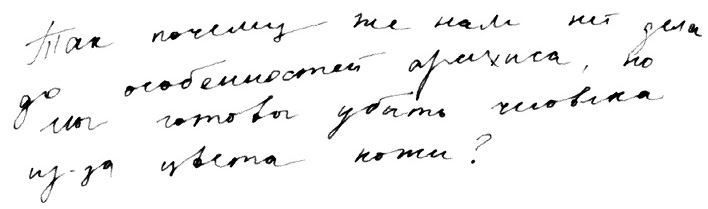 Так почему же нам нет дела
до особенностей арахиса, но
мы готовы убить человека
из-за цвета кожи?